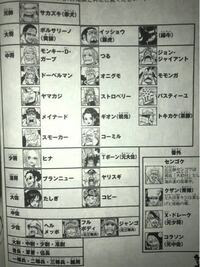 元帥
サカズキ(赤犬)
大将
ボルサリーノ
(黄猿)
イッショウ
(藤虎)
(緑牛)
中将
モンキー・D・
ガープ
つる
ジョン・
ジャイアント
ドーベルマン
オニグモ
モモンガ
ヤマカジ
ストロベリー
バスティーユ
メイナード
ギオン(桃兎)
トキカケ(茶豚)
スモーカー
コーミル
少将
ヒナ
Tボーン(元大佐)
番外
センゴク
准将
ブランニュー
ヤリスギ
クザン(青雉)
大佐
たしぎ
コビー
X・ドレーク
(元少将)
中佐
少佐
ヘル
メッポ
フル
ボディ
ジャンゴ
コラソン
(元中佐)
大尉・中尉・少尉・准尉
曹長・軍曹・伍長
一等兵・二等兵・三等兵・雑用